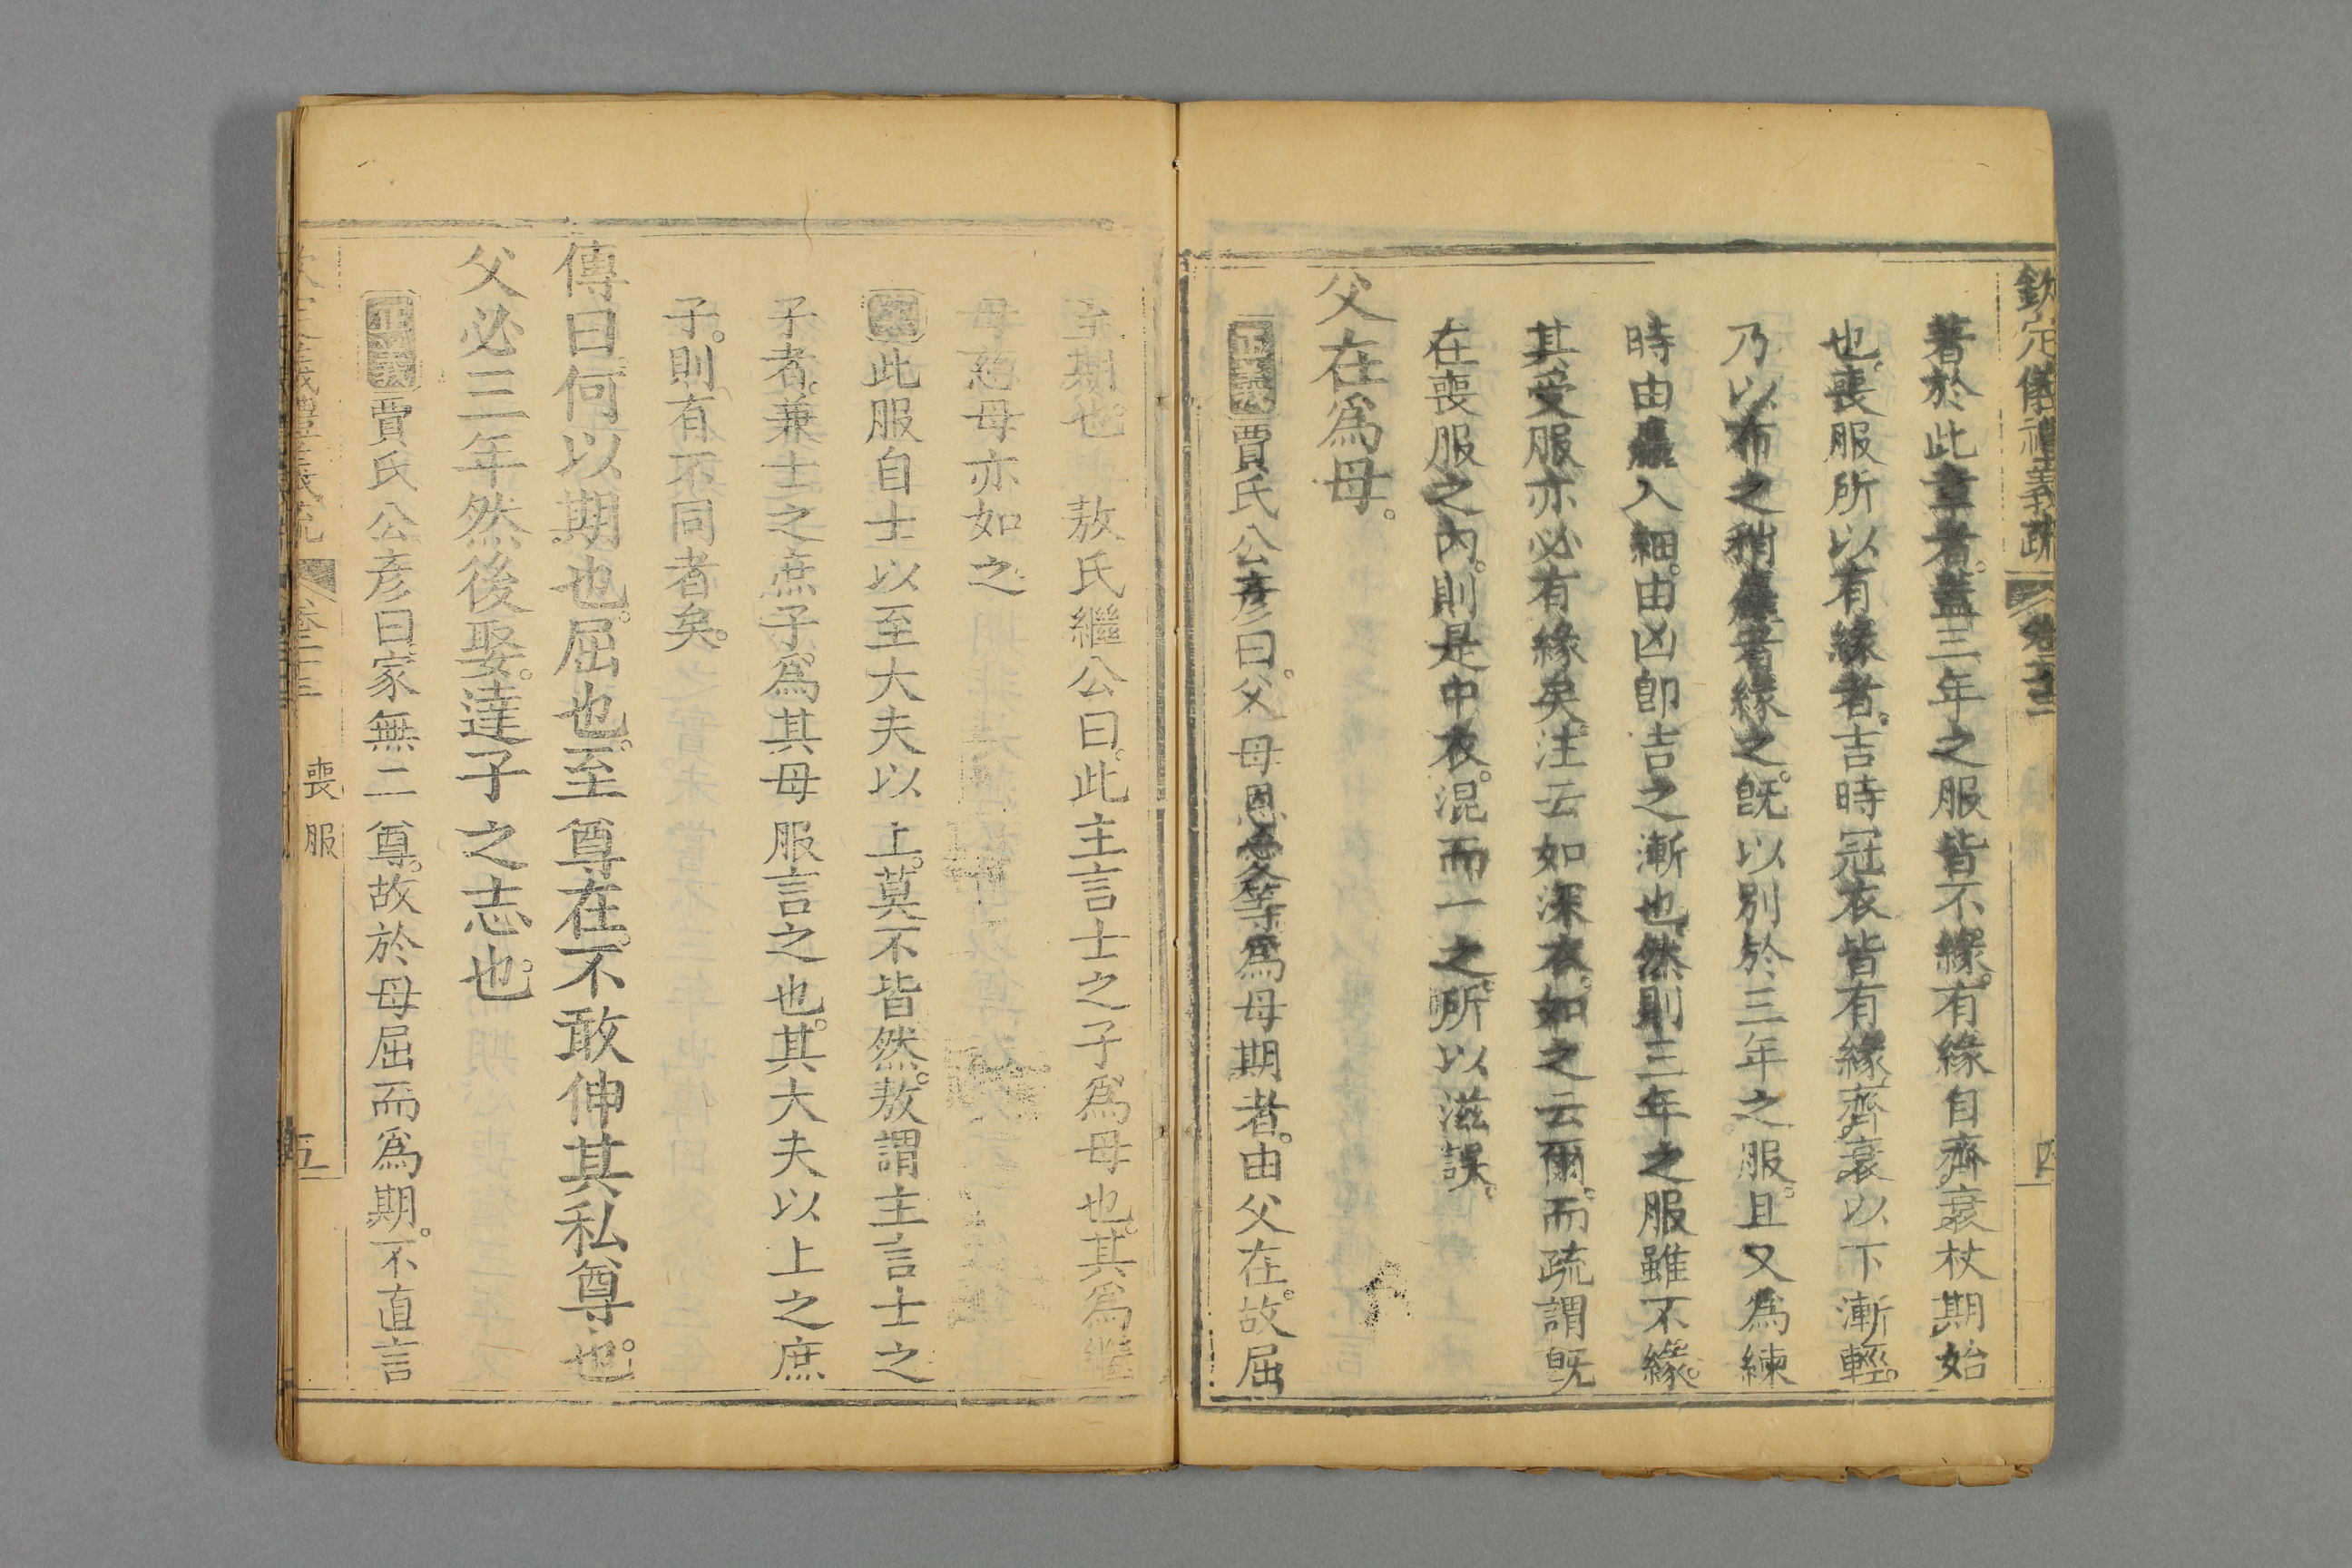 欽定儀禮義疏 卷二十三 四
著於此章者。蓋三年之服皆不緣。有緣自齊衰杖期始
也。喪服所以有緣者。吉時冠衣皆有緣齊衰以下漸輕。
乃以布之稍麤者緣之。旣以別於三年之服。且又爲練
時由麤入細。由凶卽吉之漸也。然則三年之服雖不緣。
其受服亦必有緣矣。注云如深衣。如之云爾。而疏謂旣
在喪服之內。則是中衣。混而一之。所以滋誤。
父在爲母。
正義賈氏公彥曰。父母恩愛等爲母期者。由父在。故屈
至期也。 敖氏繼公曰。此主言士之子爲母也。其爲繼
母慈母亦如之
案此服自士以至大夫以上。莫不皆然。敖謂主言士之
子者。兼士之庶子爲其母服言之也。其大夫以上之庶
子。則有不同者矣。
傳曰何以期也。屈也。至尊在。不敢伸其私尊也。
父必三年然後娶。達子之志也。
正義賈氏公彥曰家無二尊。故於母屈而爲期。不直言
喪服 五